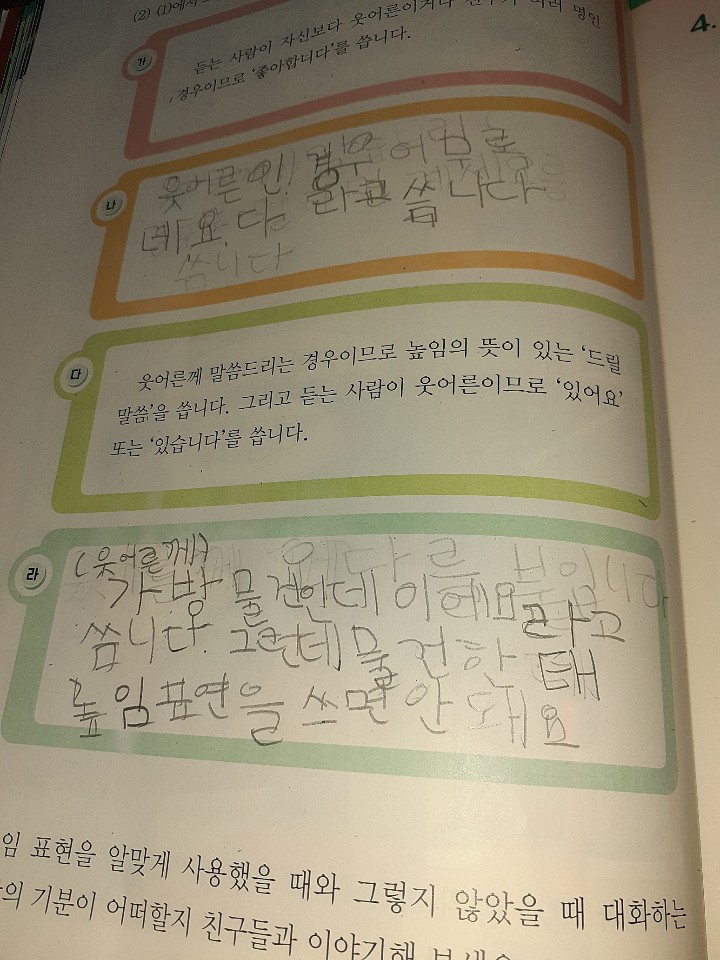 (2) (1)에서
듣는 사람이 자신보다 웃어른이거나 친구가 여러 명인
가
경우이므로 '좋아합니다'를 씁니다.
웃어른인 경우 어므로
나
데요. 다 라고 씁니다
씁니다
웃어른께 말씀드리는 경우이므로 높임의 뜻이 있는 '드릴
다
말씀'을 씁니다. 그리고 듣는 사람이 웃어른이므로 '있어요'
또는 '있습니다'를 씁니다.
(웃어른께)
라
가방 물건인데 이에요라고
씀니다. 그런데 물건한태
높임표연을 쓰면 안 돼요
임 표현을 알맞게 사용했을 때와 그렇지 않았을 때 대화하는
의 기분이 어떠할지 친구들과 이야기해
4.